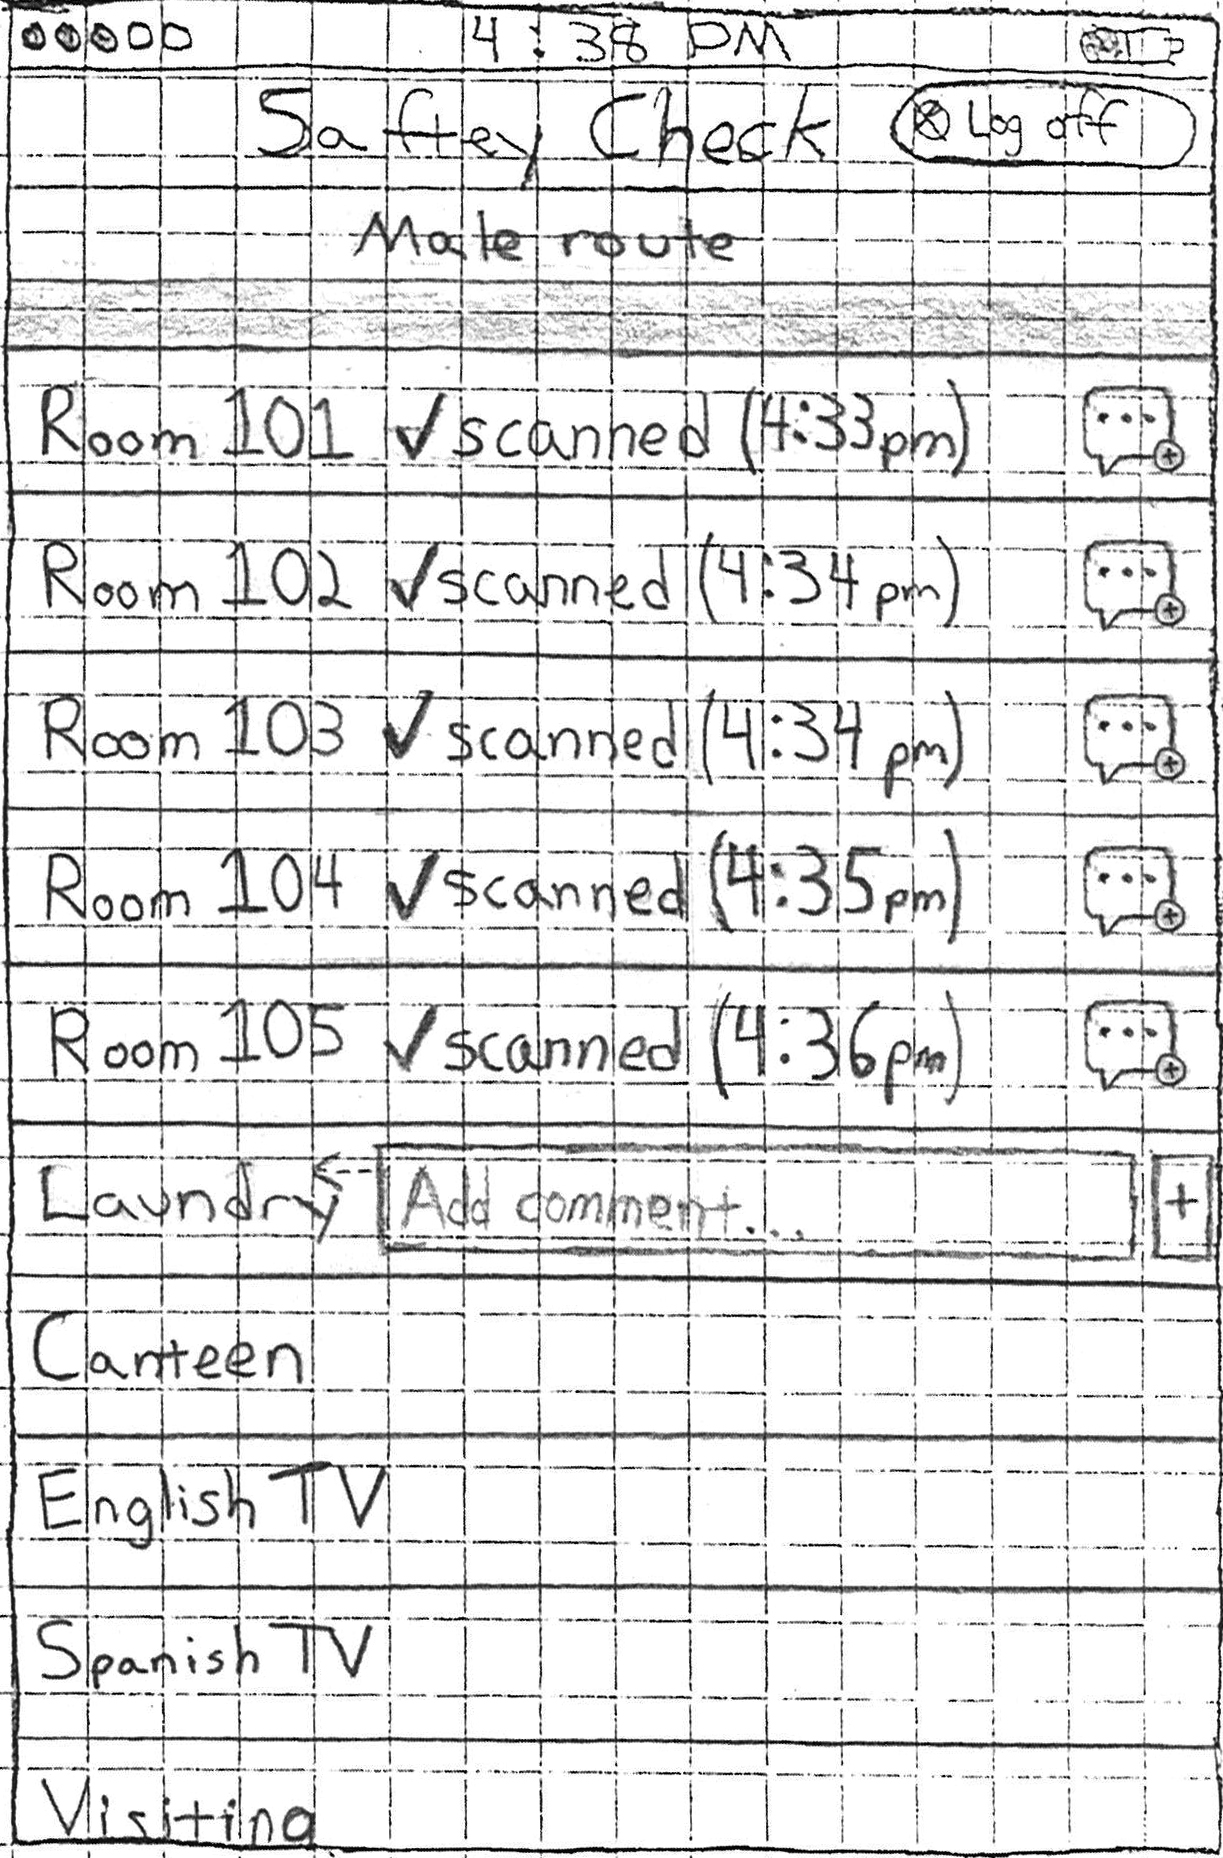 4:38 PM
Saftey Check
Log off
Male route
Room 101 ✓ scanned (4:33pm)
Room 102 ✓ scanned (4:34pm)
Room 103 ✓ scanned (4:34pm)
Room 104 ✓ scanned (4:35pm)
Room 105 ✓ scanned (4:36pm)
Laundry Add comment... +
Canteen
English TV
Spanish TV
Visiting